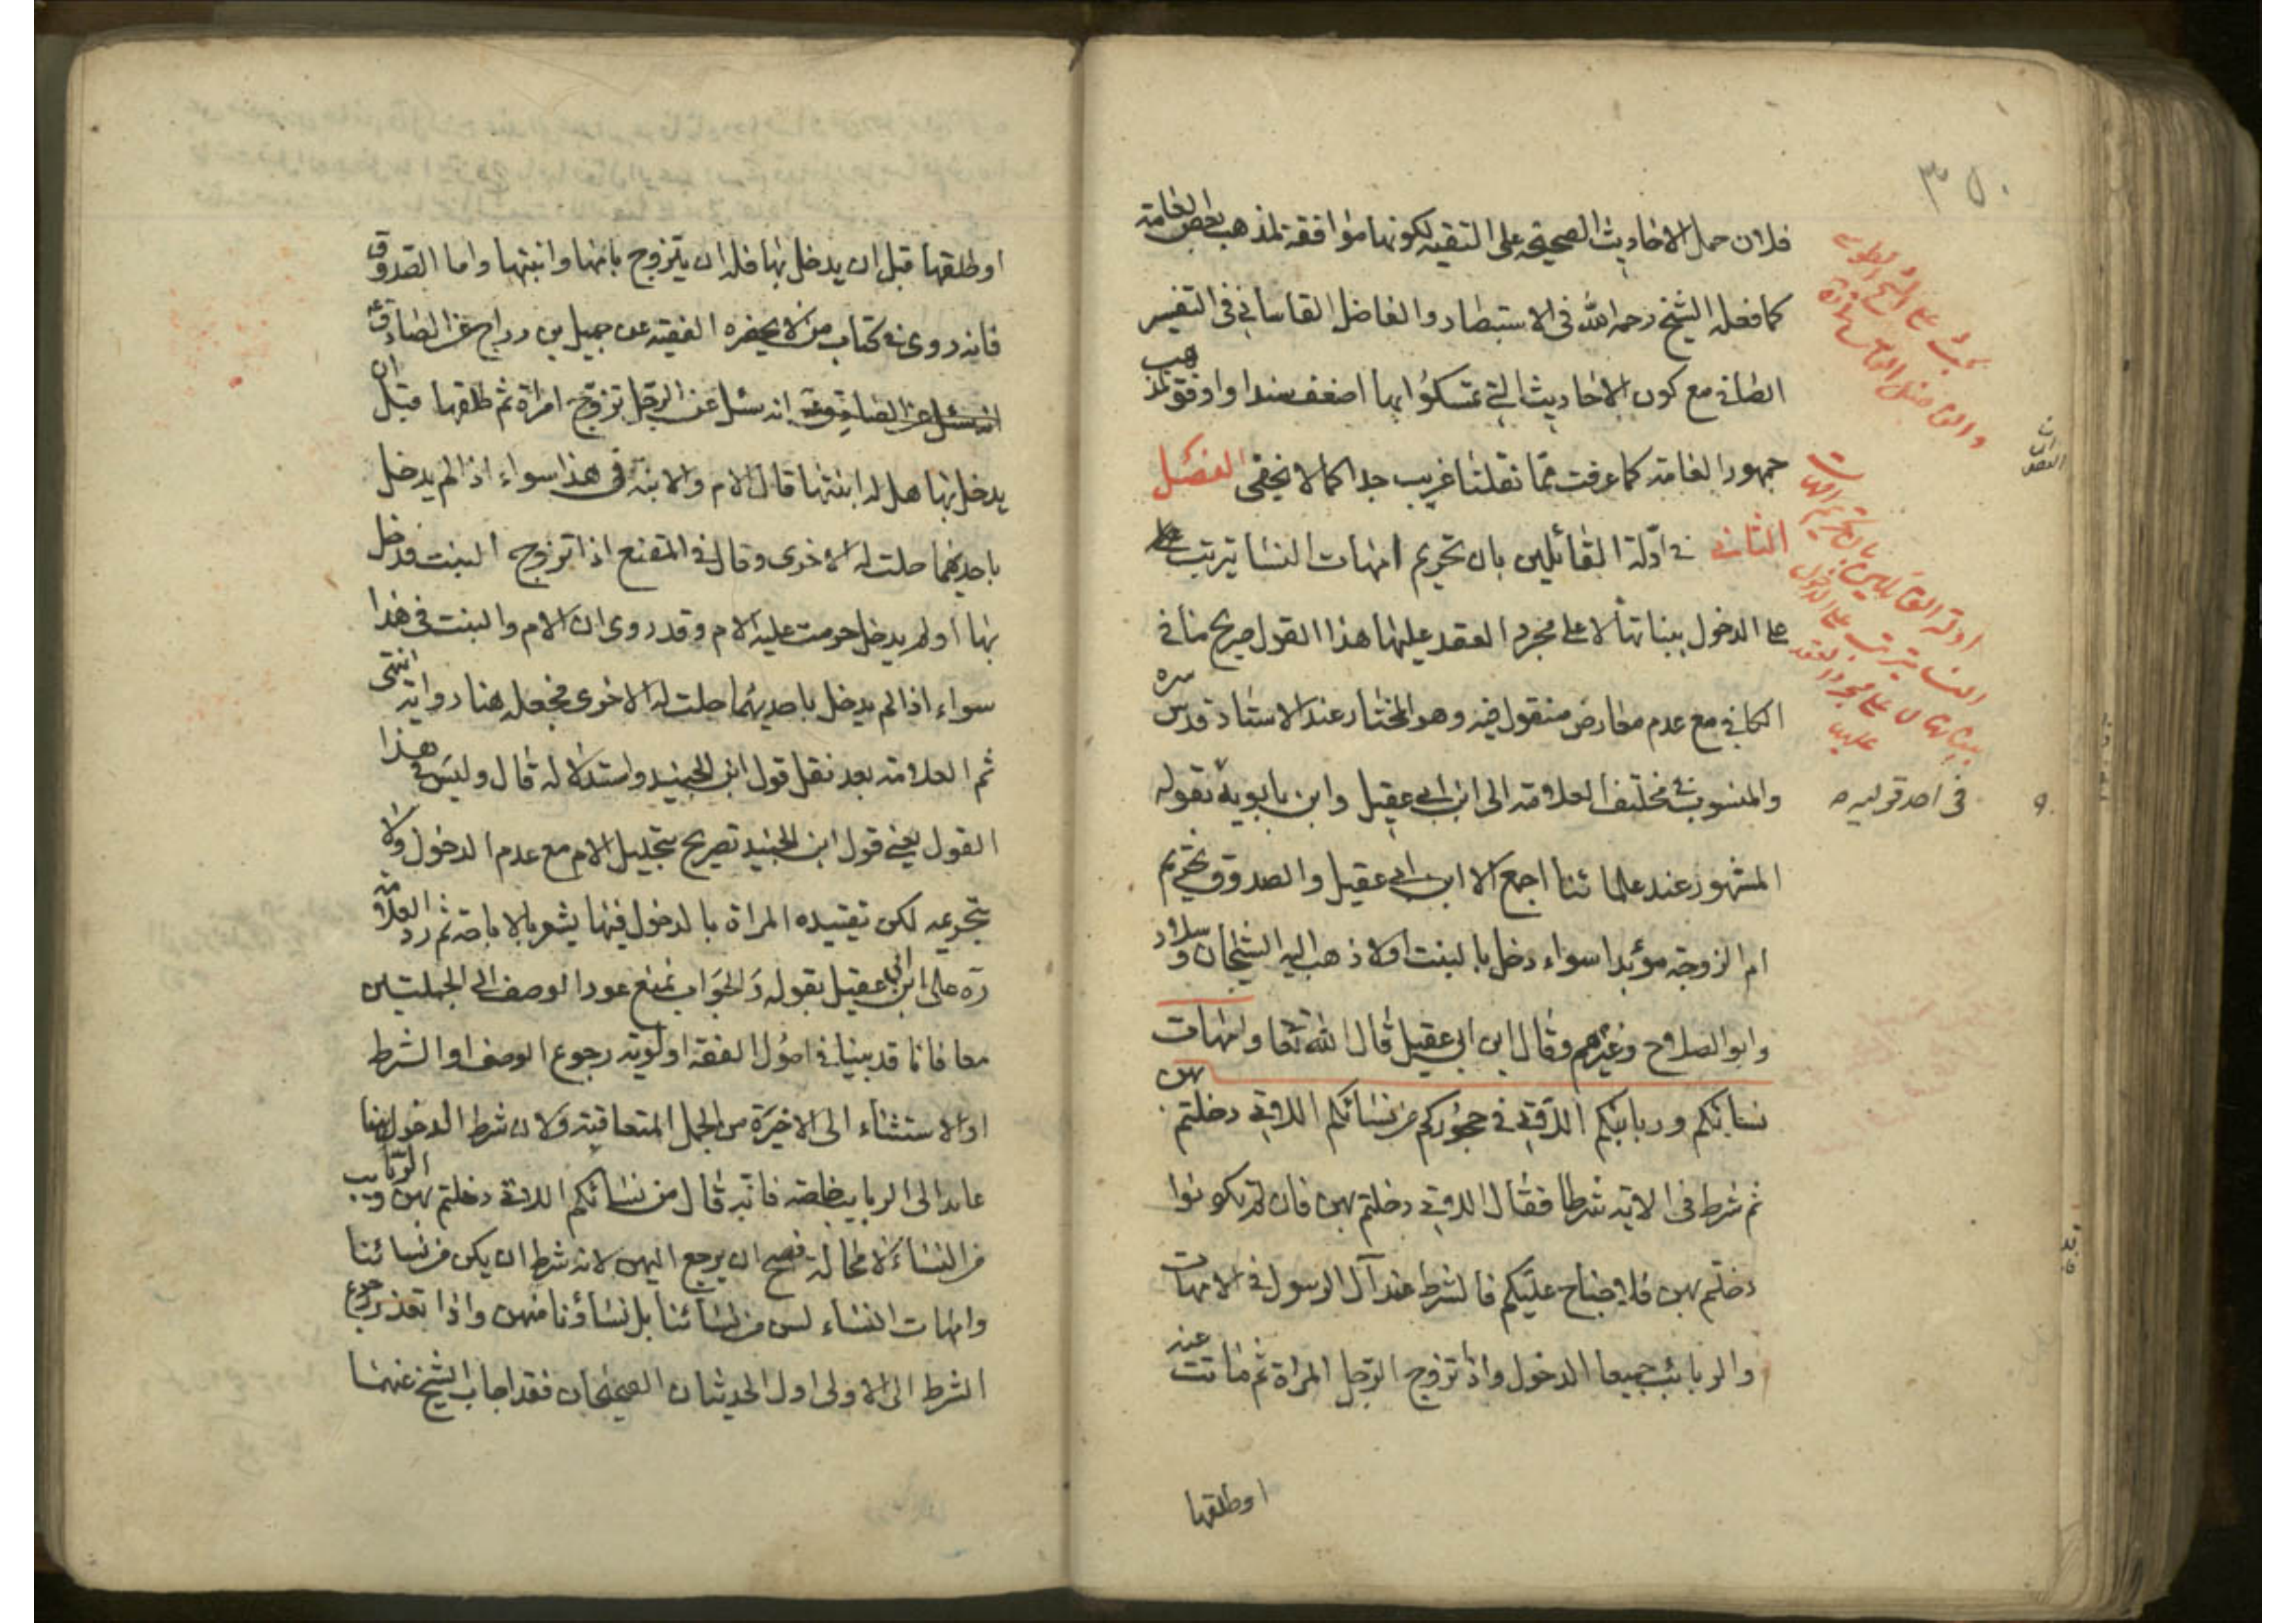 ٣٥٠
فلان حمل الاخاديث الصحيحة على التقيه لكونها موافقة لمذهب بعض العامة
كما فعله الشيخ رحمه الله فى الاستبصار والفاضل القاسانى فى التفسير
الصافى مع كون الاحاديث التى تمسكوا بها اضعف سندا واوفق لمذهب
جمهور العامة كما عرفت مما نقلنا غريب جدا كما لا يخفى الفصل
الثانى فى ادلة القائلين بان تحريم امهات النسا يترتب على
على الدخول ببناتها لا على مجرد العقد عليها هذا القول صريح ما فى
الكافى مع عدم معارض منقول فيه وهو المختار عند الاستاد قدس سره
والمنسوب فى مختلف العلامة الى ابن ابى عقيل وابن بابويه بقوله
فى احد قوليه
المشهور عند علمائنا اجمع الا ابن ابى عقيل والصدوق تحريم
ام الزوجة مؤبدا سواء دخل بالبنت اولا ذهب اليه الشيخان وسلار
وابو الصلاح وغيرهم وقال ابن ابى عقيل قال الله تعا وامهات
نسائكم وربائبكم اللاتى فى حجوركم من نسائكم اللاتى دخلتم بهن
ثم شرط فى الاية شرطا فقال اللاتى دخلتم بهن فان لم تكونوا
دخلتم بهن فلا جناح عليكم فالشرط عند آل الرسول فى الامهات
والربائب جميعا الدخول واذا تزوج الرجل المراة ثم ماتت عنه
اوطلقها
ادلة القايلين بان تحريم امهات
النسا يترتب على الدخول
ببناتها لا على مجرد العقد
عليها
اوطلقها قبل ان يدخل بها فله ان يتزوج بامها وابنتها واما الصدوق
فانه روى فى كتاب من لا يحضره الفقيه عن جميل بن دراج عن الصادق ع
انه سئل عن الرجل تزوج امراة ثم طلقها قبل ان
يدخل بها هل له ابنتها قال الام والابنة فى هذا سواء اذا لم يدخل
باحديهما حلت له الاخرى وقال فى المقنع اذا تزوج البنت فدخل
بها اولم يدخل حرمت عليه الام وقد روى ان الام والبنت فى هذا
سواء اذا لم يدخل باحديهما حلت له الاخرى فجعله هنا رواية انتهى
ثم العلامة بعد نقل قول ابن الجنيد واستدلاله قال وليس فى هذا
القول يعنى قول ابن الجنيد تصريح بتحليل الام مع عدم الدخول ولا
بتحريمه لكن تقييده المراة بالدخول فيها يشعر بالاباحة ثم رد العلامة
ره على ابن ابى عقيل بقوله والجواب نمنع عود الوصف الى الجملتين
معا فانا قد بينا فى اصول الفقه اولوية رجوع الوصف او الشرط
او الاستثناء الى الاخيرة من الجمل المتعاقبة ولان شرط الدخول هنا
عايد الى الربايب خاصة فانه قال من نسائكم اللاتى دخلتم بهن والربايب
من النساء لا محالة فصح ان يرجع اليهن لانه شرط ان يكن من نسائنا
وامهات النساء ليس من نسائنا بل نساؤنا منهن واذا تعذر رجوع
الشرط الى الاولى اول الحديثان الصحيحان فقد اجاب الشيخ عنهما